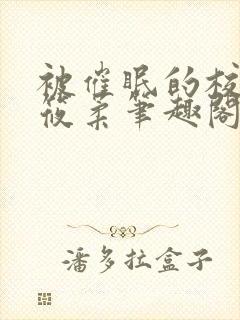 被催眠的校
筱柔笔趣阁
潘多拉盒子